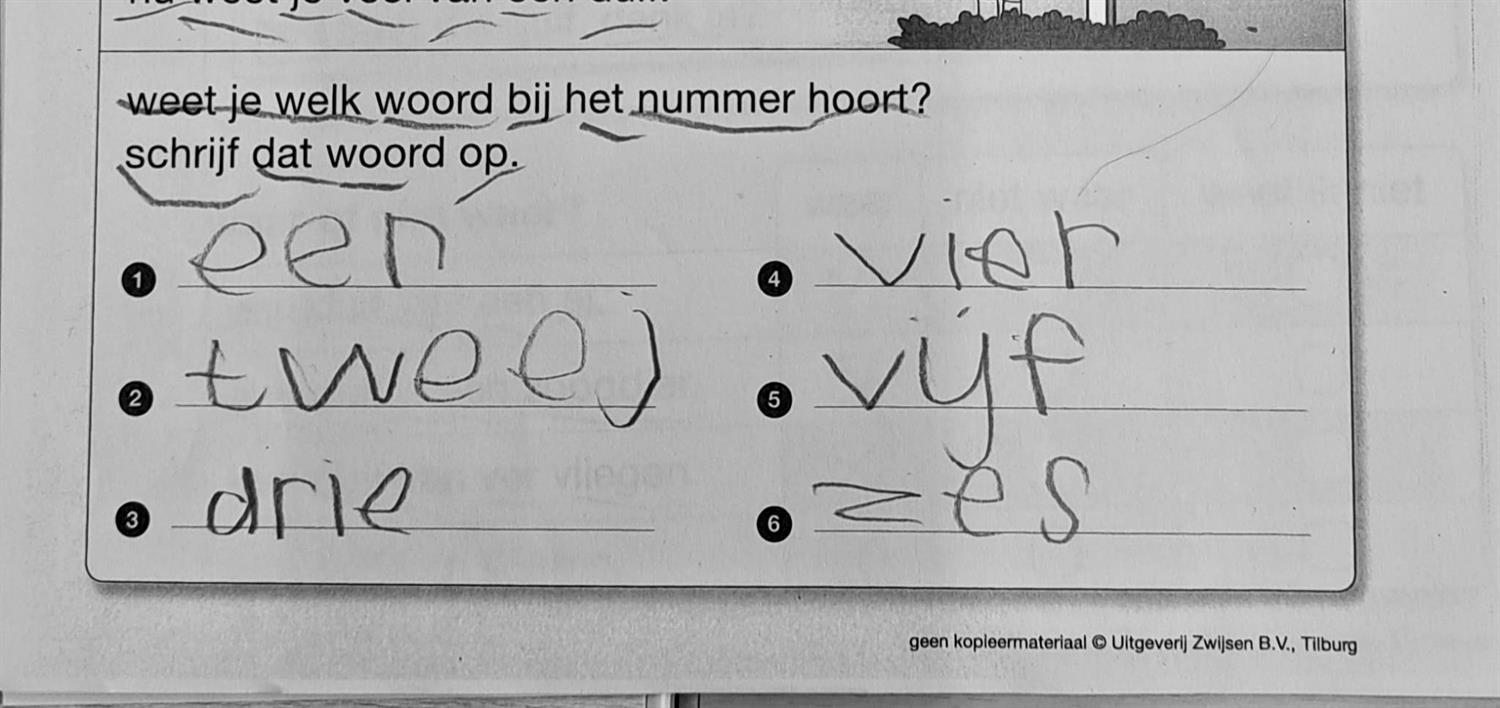 weet je welk woord bij het nummer hoort?
schrijf dat woord op.
1 een
2 tweej
3 drie
4 vier
5 vijf
6 zes
geen kopieermateriaal © Uitgeverij Zwijsen B.V., Tilburg